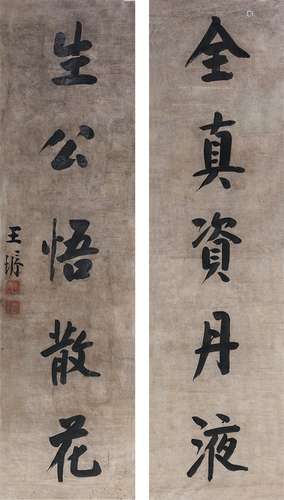 全真資丹液
生公悟散花
王